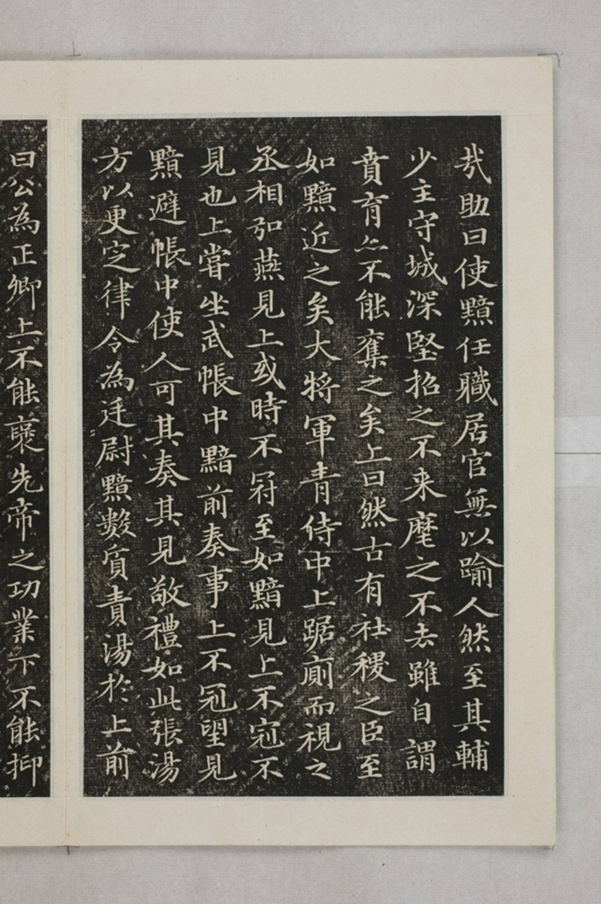 哉助曰使黯任職居官無以踰人然至其輔
少主守城深堅招之不来麾之不去雖自謂
賁育亦不能奪之矣上曰然古有社稷之臣至
如黯近之矣大將軍青侍中上踞廁而視之
丞相弘燕見上或時不冠至如黯見上不冠不
見也上嘗坐武帳中黯前奏事上不冠望見
黯避帳中使人可其奏其見敬禮如此張湯
方以更定律令為廷尉黯數質責湯於上前
曰公為正卿上不能襃先帝之功業下不能抑